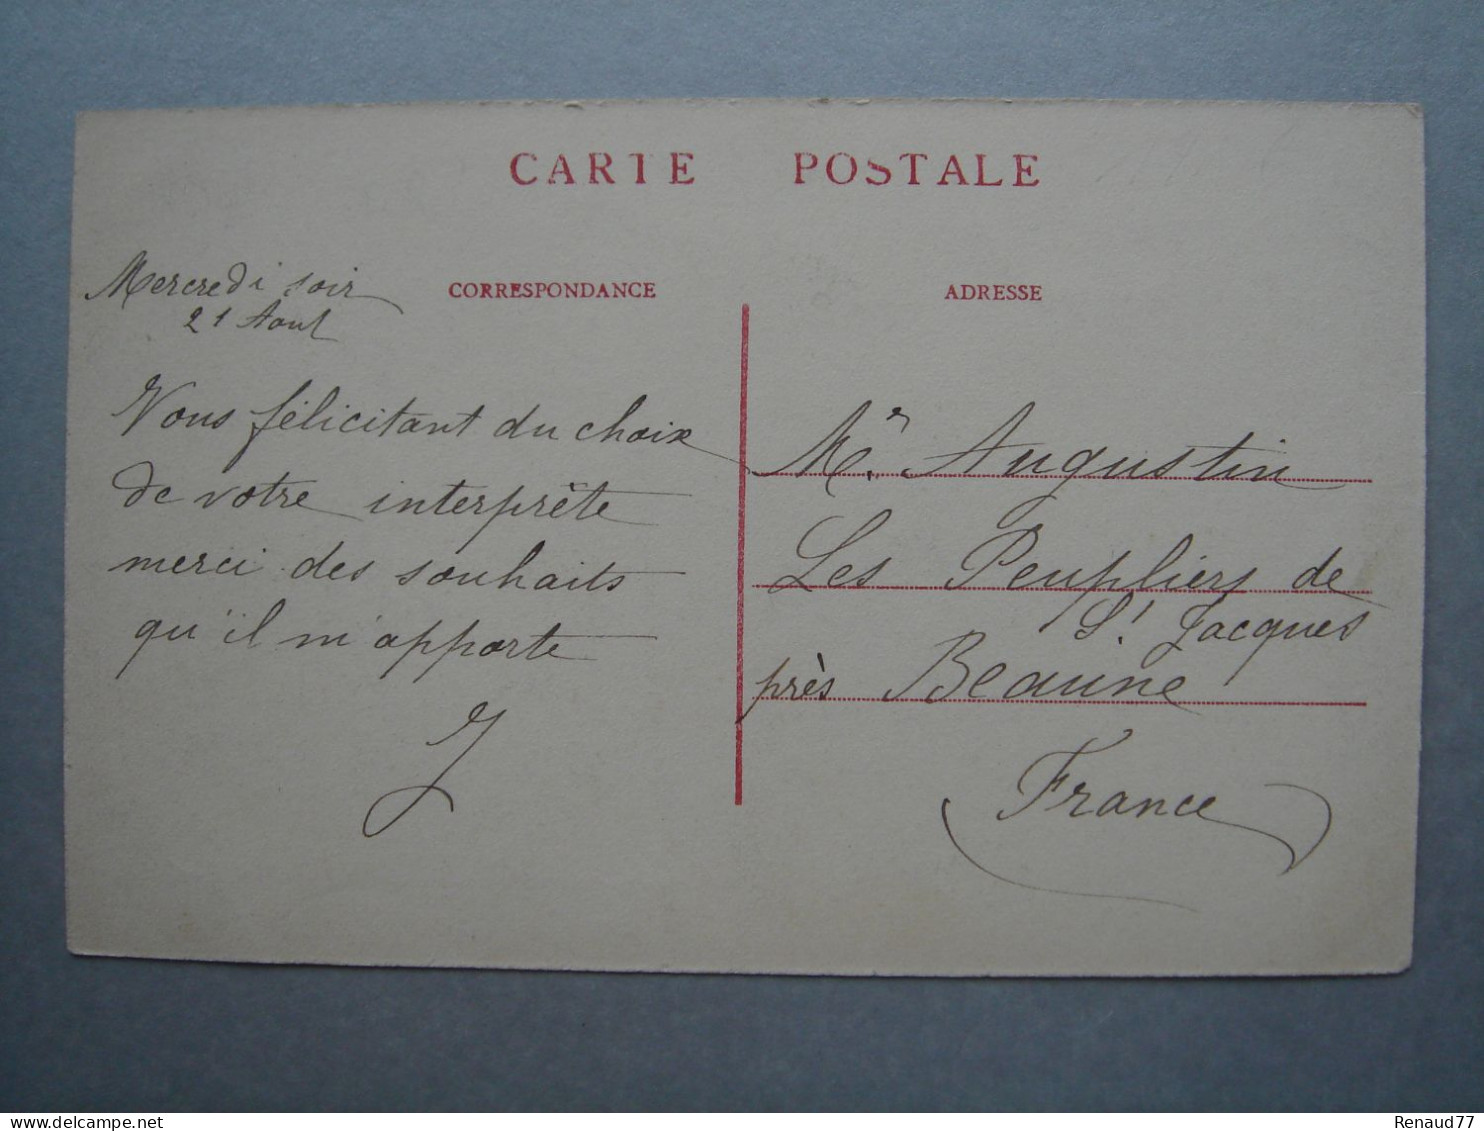 CARTE POSTALE
CORRESPONDANCE
ADRESSE
Mercredi soir
21 Aout
Vous félicitant du choix
de votre interprête
merci des souhaits
qu'il m'apporte
J
Mr. Augustin
Les Peupliers de
St. Jacques
près Beaune
France
delcampe.net
Renaud77